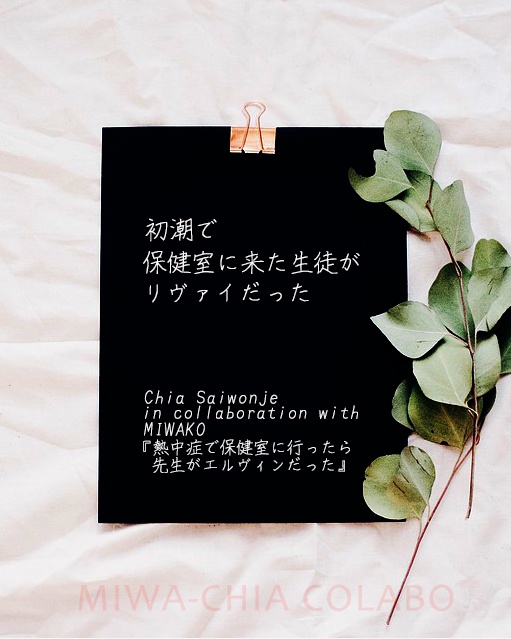 初潮で
保健室に来た生徒が
リヴァイだった
Chia Saiwonje
in collaboration with
MIWAKO
『熱中症で保健室に行ったら
先生がエルヴィンだった』
MIWA-CHIA COLABO